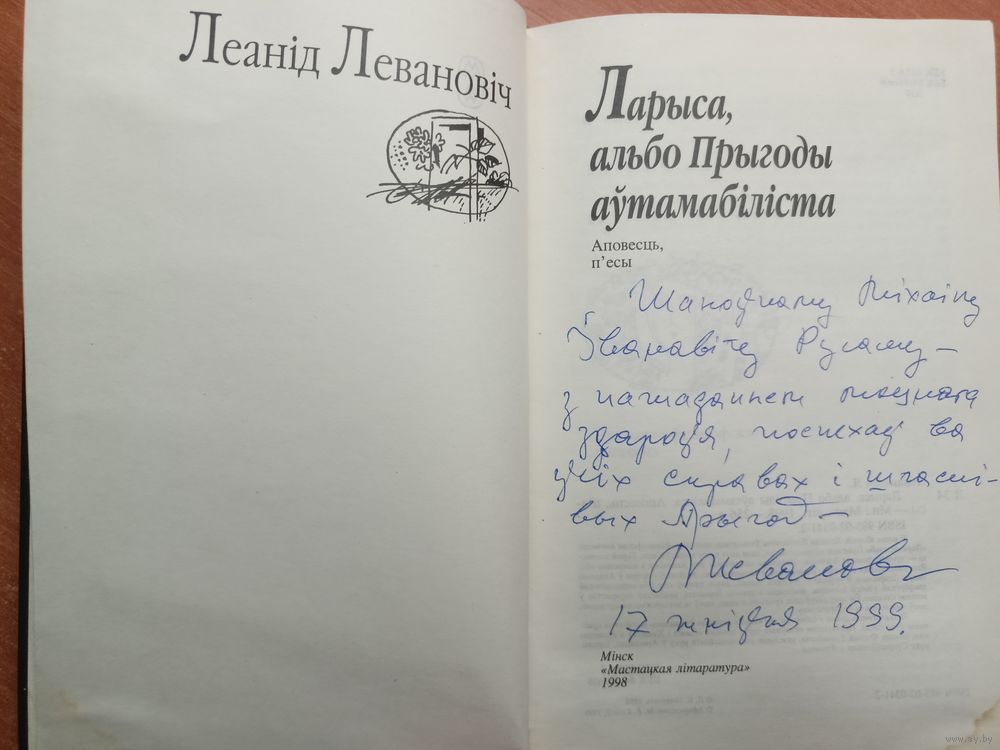 Леанід Левановіч
Ларыса,
альбо Прыгоды
аўтамабіліста
Аповесць,
п'есы
Шаноўнаму Міхаілу
Іванавічу
з пажаданнем моцнага
здароўя, поспехаў ва
ўсіх справах і шчаслі-
вых Прыгод –
Левановіч
17 жніўня 1999.
Мінск
«Мастацкая літаратура»
1998
www.ay.by